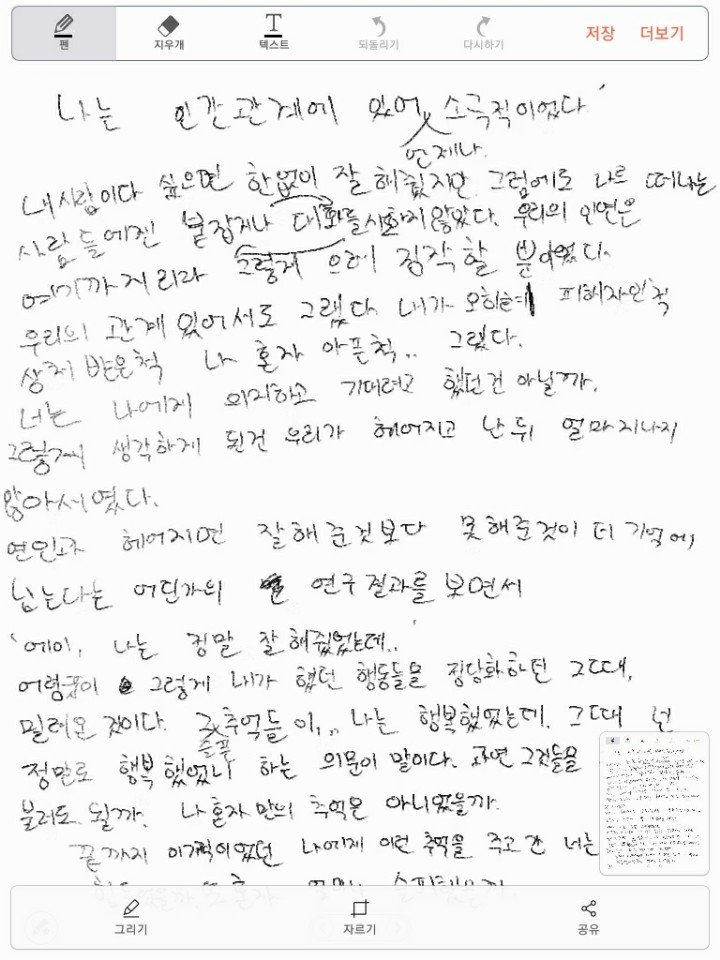 펜 지우개 텍스트 되돌리기 다시하기 저장 더보기
나는 인간관계에 있어 소극적이었다
언제나.
내사람이다 싶으면 한없이 잘해줬지만 그럼에도 나르 떠나는
사람들에겐 붙잡지나 대화를시도하지않았다. 우리의 인연은
여기까지리라 그렇게 으레 짐작할 뿐이었다.
우리의 관계 있어서도 그랬다 내가 오히려 피해자인척
상처 받은척 나 혼자 아픈척.. 그랬다.
너는 나에게 의지하고 기대려고 했던건 아닐까.
그렇게 생각하게 된건 우리가 헤어지고 난 뒤 얼마지나지
않아서 였다.
연인과 헤어지면 잘해준것보다 못해준것이 더 기억에
남는다는 어딘가의 연구결과를 보면서
'에이, 나는 정말 잘해줬었는데..'
어렴풋이 그렇게 내가 했던 행동들을 정당화하던 그때,
밀려온 것이다. 그 추억들이,.. 나는 행복했었는데. 그때 넌
슬픈
정말로 행복했었니 하는 의문이 말이다. 과연 그것들을
불러도 될까. 나혼자만의 추억은 아니었을까.
끝까지 이기적이었던 나에게 이런 추억을 주고 간 너는
그리기 자르기 공유